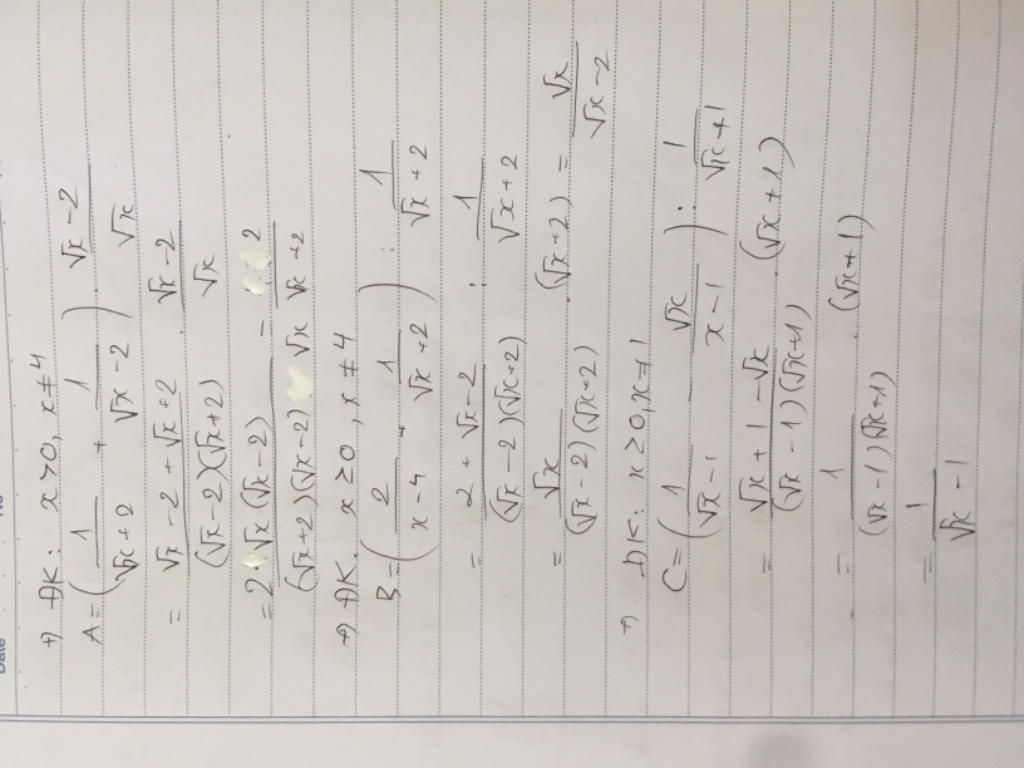 +) ĐK: x > 0, x ≠ 4
A = ( 1/(√x + 2) + 1/(√x - 2) ) . (√x - 2)/√x
= (√x - 2 + √x + 2)/((√x - 2)(√x + 2)) . (√x - 2)/√x
= 2√x(√x - 2)/((√x + 2)(√x - 2)√x) = 2/(√x + 2)
+) ĐK: x ≥ 0, x ≠ 4
B = ( 2/(x - 4) + 1/(√x + 2) ) : 1/(√x + 2)
= (2 + √x - 2)/((√x - 2)(√x + 2)) : 1/(√x + 2)
= √x/((√x - 2)(√x + 2)) . (√x + 2) = √x/(√x - 2)
+) ĐK: x ≥ 0, x ≠ 1
C = ( 1/(√x - 1) - √x/(x - 1) ) : 1/(√x + 1)
= (√x + 1 - √x)/((√x - 1)(√x + 1)) . (√x + 1)
= 1/((√x - 1)(√x + 1)) . (√x + 1)
= 1/(√x - 1)